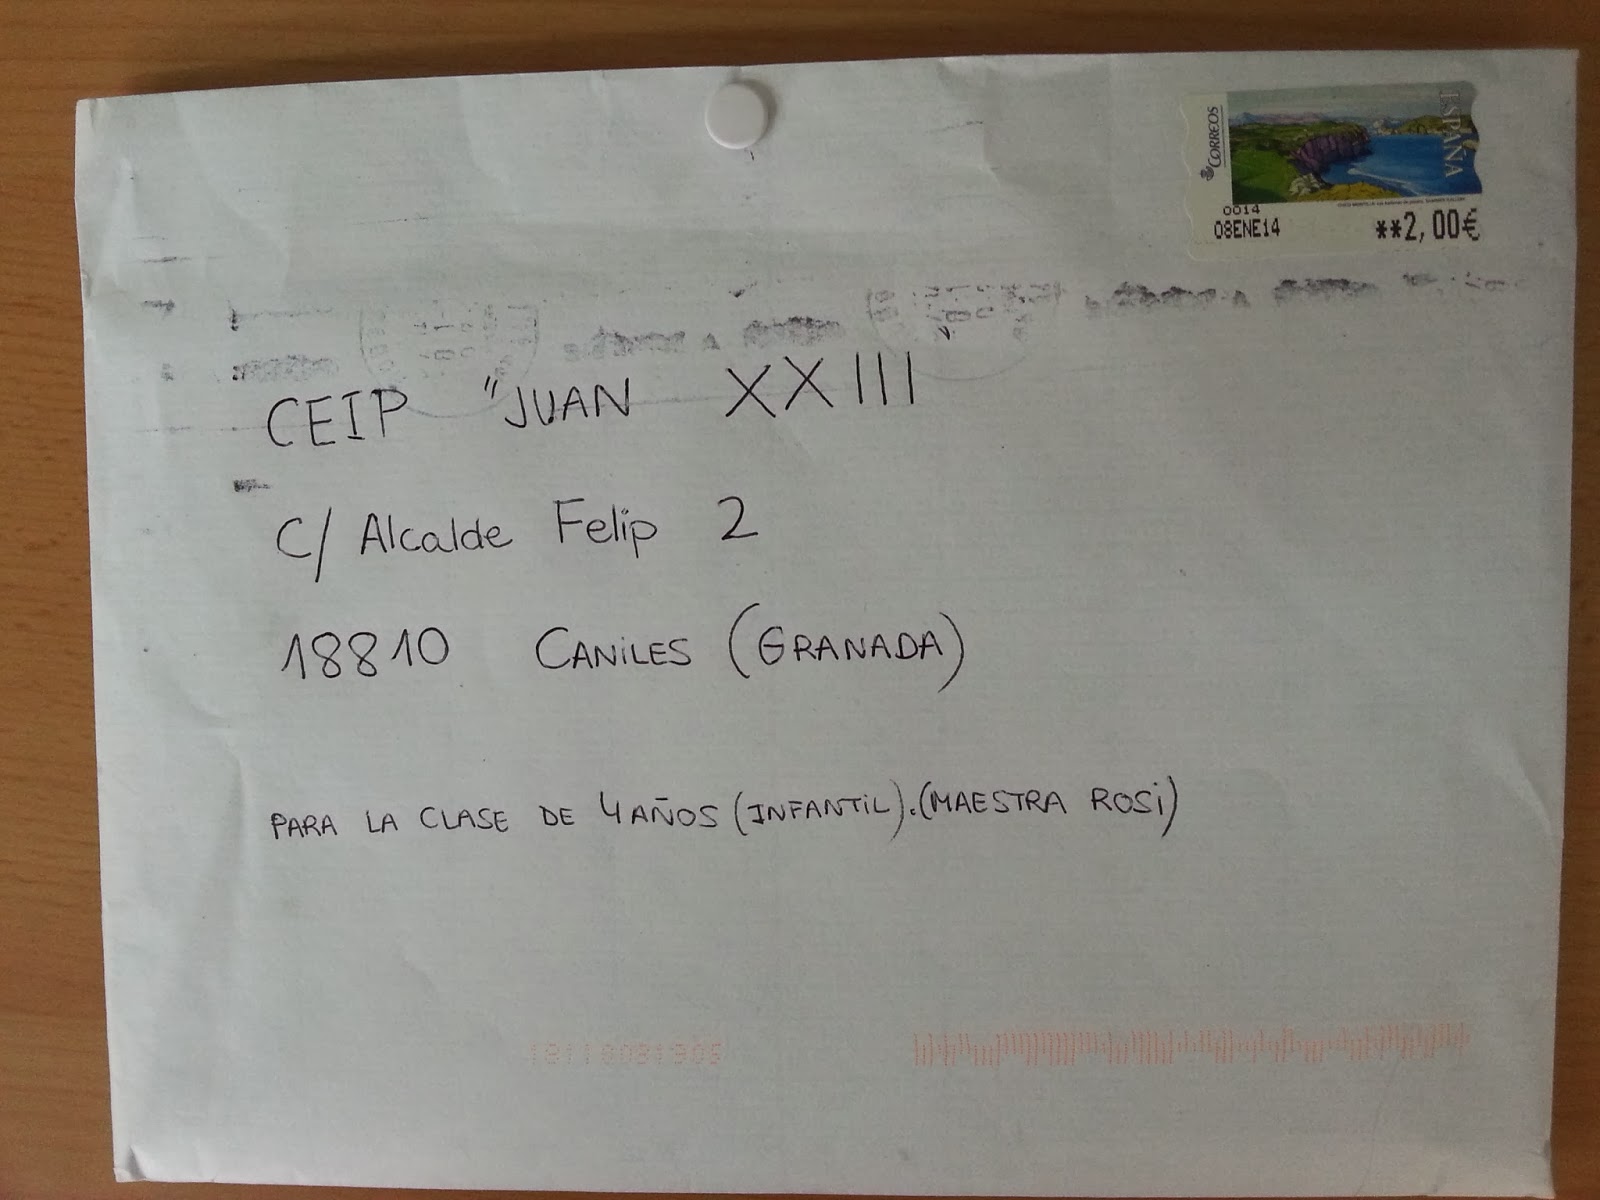 CORREOS
ESPAÑA
0014
08ENE14 **2,00€
CEIP "JUAN XXIII
C/ Alcalde Felip 2
18810 CANiLES (GRANADA)
PARA LA CLASE DE 4 AÑOS (INFANTiL). (MAESTRA ROSi)